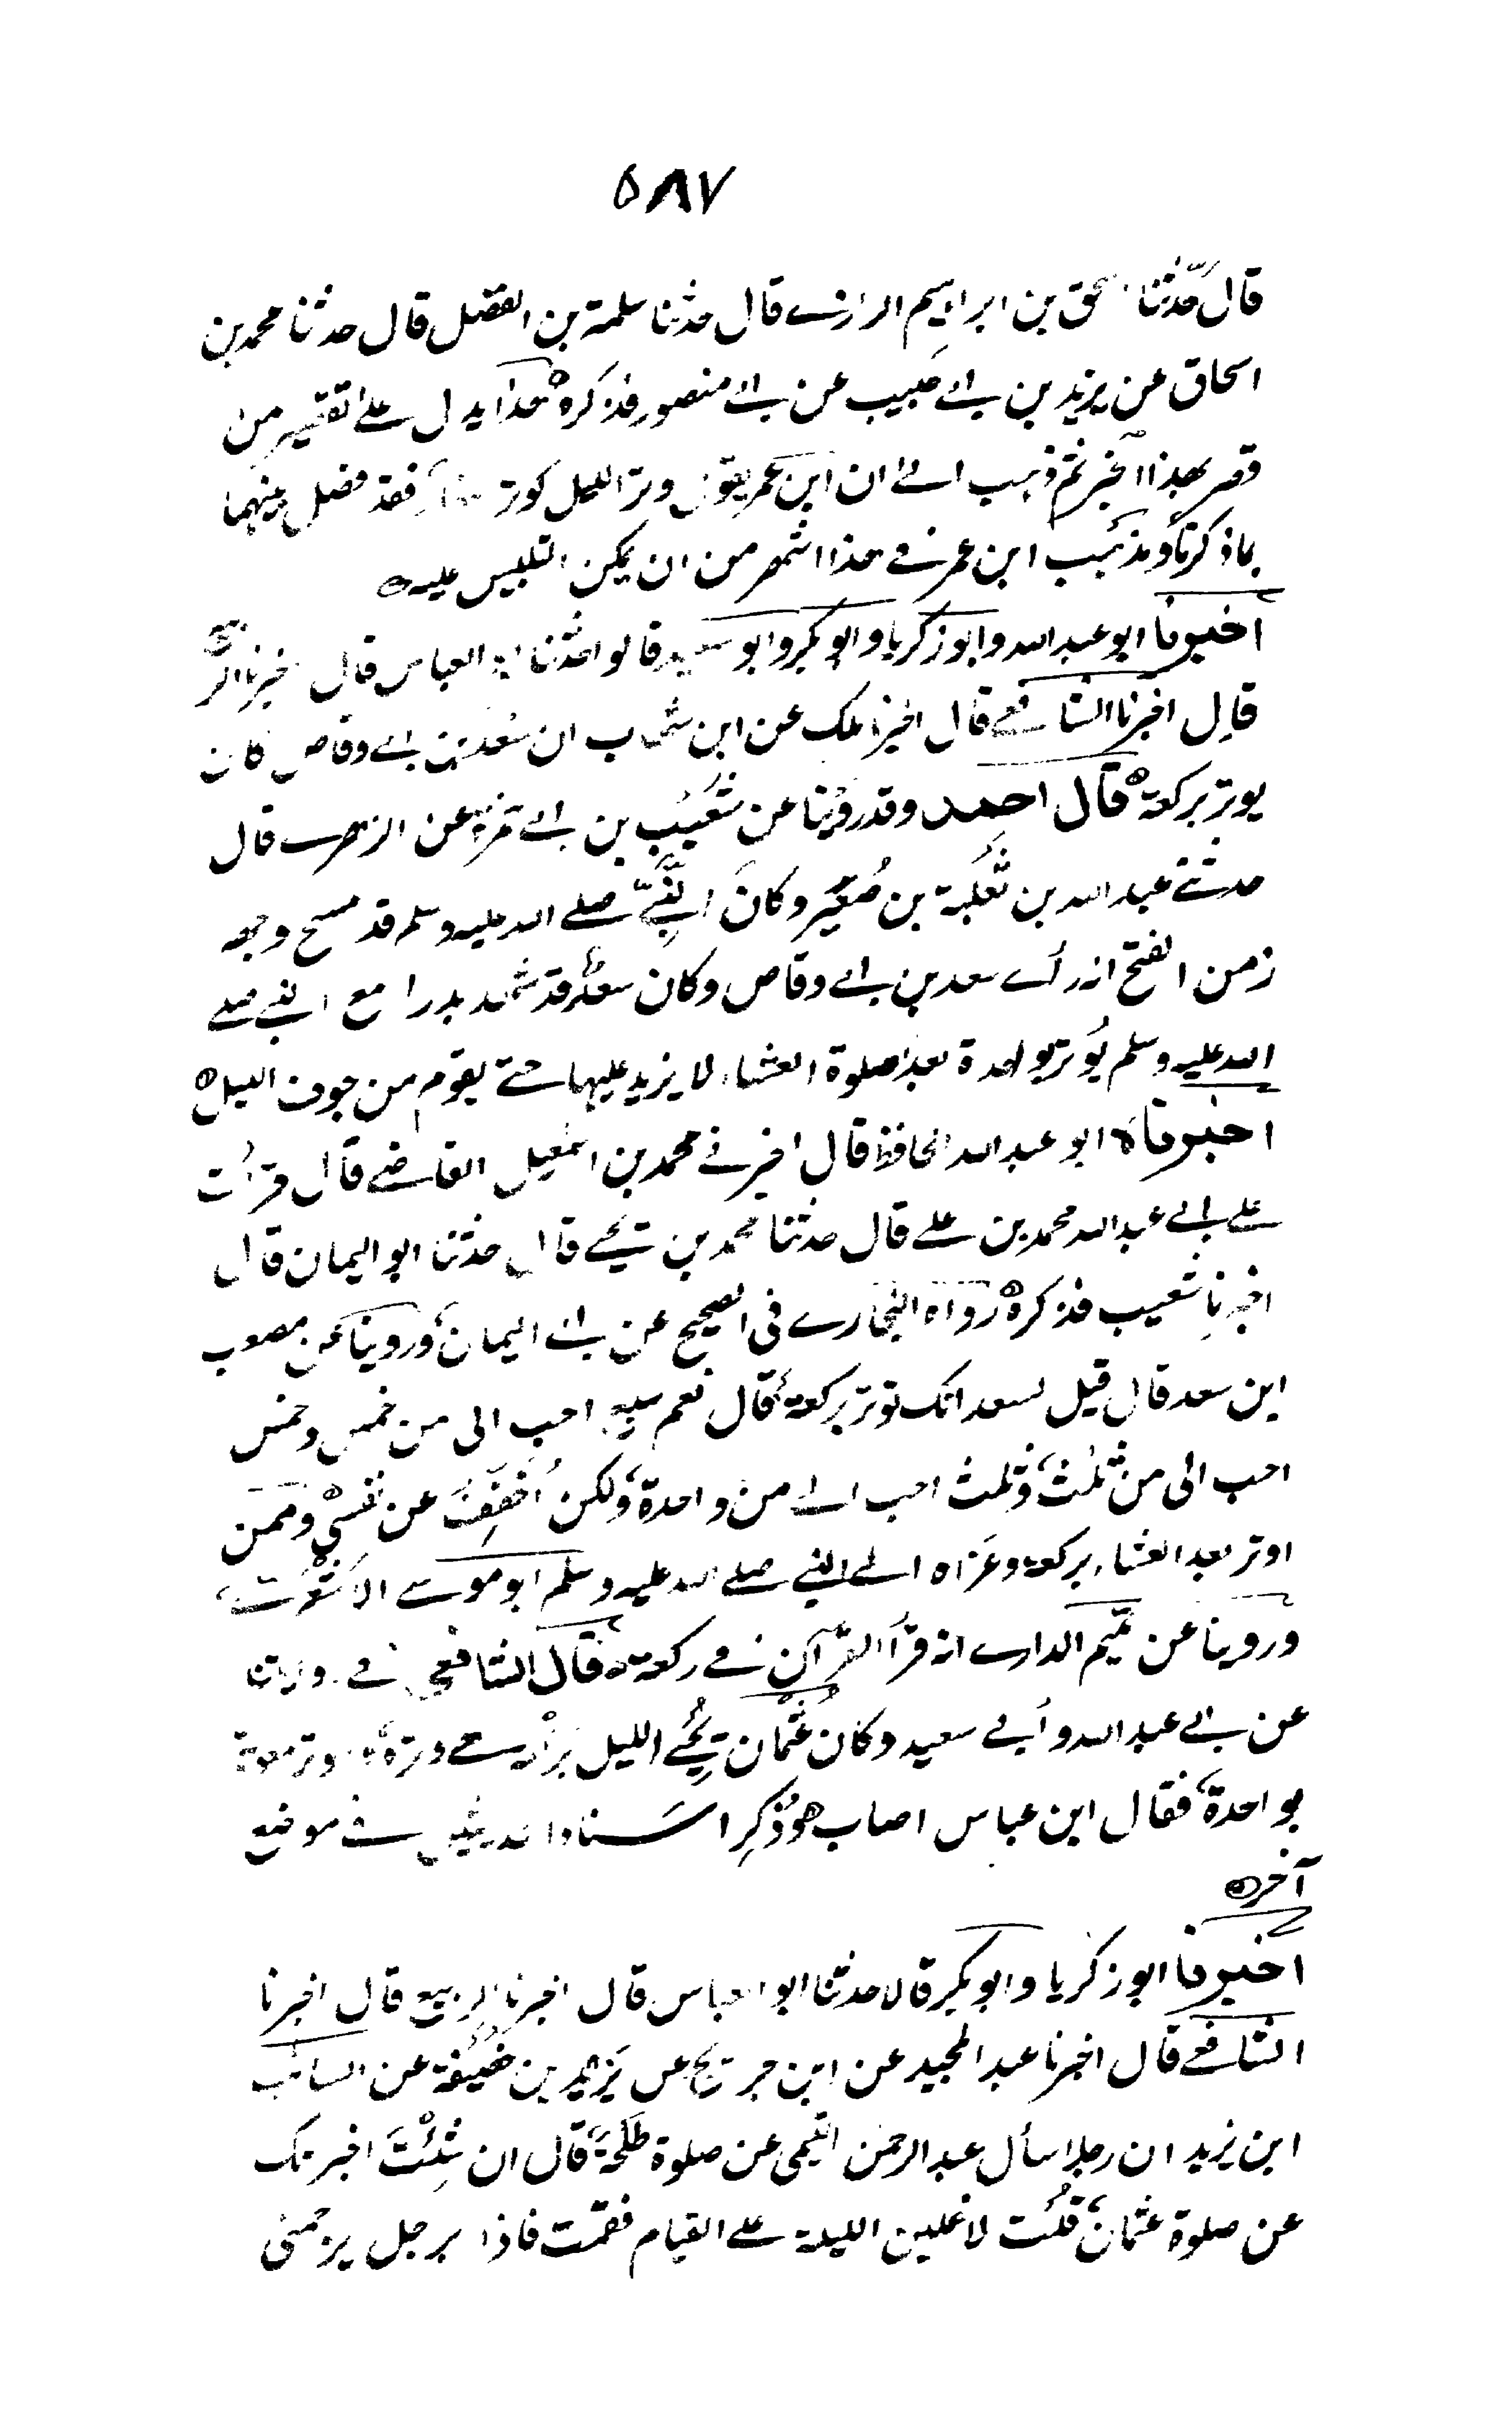 ٥٨٧
قال حدثنا اسحق بن ابراهيم الرازي قال حدثنا سلمة بن الفضل قال حدثنا محمد بن
اسحاق عن يزيد بن ابي حبيب عن ابي منصور فذكره هذا يدل على تقصير من
قصر بهذا الخبر ثم ذهب الى ان ابن عمر يقول وتر الليل كوتر فقد فصل بينهما
بما ذكرنا ومذهب ابن عمر في هذا اشهر من ان يمكن التلبيس عليه
اخبرنا ابو عبد الله وابو زكريا وابو بكر وابو سعيد قالوا حدثنا ابو العباس قال اخبرنا الربيع
قال اخبرنا الشافعي قال اخبرنا ملك عن ابن شهاب ان سعد بن ابي وقاص كان
يوتر بركعة قال احمد وقد روينا عن شعيب بن ابي حمزة عن الزهري قال
حدثني عبد الله بن ثعلبة بن صعير وكان النبي صلى الله عليه وسلم قد مسح وجهه
زمن الفتح انه رأى سعد بن ابي وقاص وكان سعد قد شهد بدرا مع النبي صلى
الله عليه وسلم يوتر بواحدة بعد صلوة العشاء لا يزيد عليها حتى يقوم من جوف الليل
اخبرناه ابو عبد الله الحافظ قال اخبرني محمد بن اسمعيل القاضي قال قرأت
على ابي عبد الله محمد بن علي قال حدثنا محمد بن يحيى قال حدثنا ابو اليمان قال
اخبرنا شعيب فذكره رواه البخاري في الصحيح عن ابي اليمان وروينا عن مصعب
ابن سعد قال قيل لسعد انك توتر بركعة قال نعم سبع احب الى من خمس وخمس
احب الى من ثلث وثلث احب الى من واحدة ولكن اخفف عن نفسي وممن
اوتر بعد العشاء بركعة وعزاه الى النبي صلى الله عليه وسلم ابو موسى الاشعري
وروينا عن تميم الداري انه قرأ القرآن في ركعة قال الشافعي في روايتنا
عن ابي عبد الله وأبي سعيد وكان عثمان يحيي الليل بركعة هي وتره واوتر معوية
بواحدة فقال ابن عباس اصاب وذكر اسناد الحديثين في موضع
آخر
اخبرنا ابو زكريا وابو بكر قالا حدثنا ابو العباس قال اخبرنا الربيع قال اخبرنا
الشافعي قال اخبرنا عبد المجيد عن ابن جريج عن يزيد بن خصيفة عن السائب
ابن يزيد ان رجلا سأل عبد الرحمن التيمي عن صلوة طلحة قال ان شئت اخبرتك
عن صلوة عثمان قلت لاغلبن الليلة على القيام فقمت فاذا برجل يزحمني